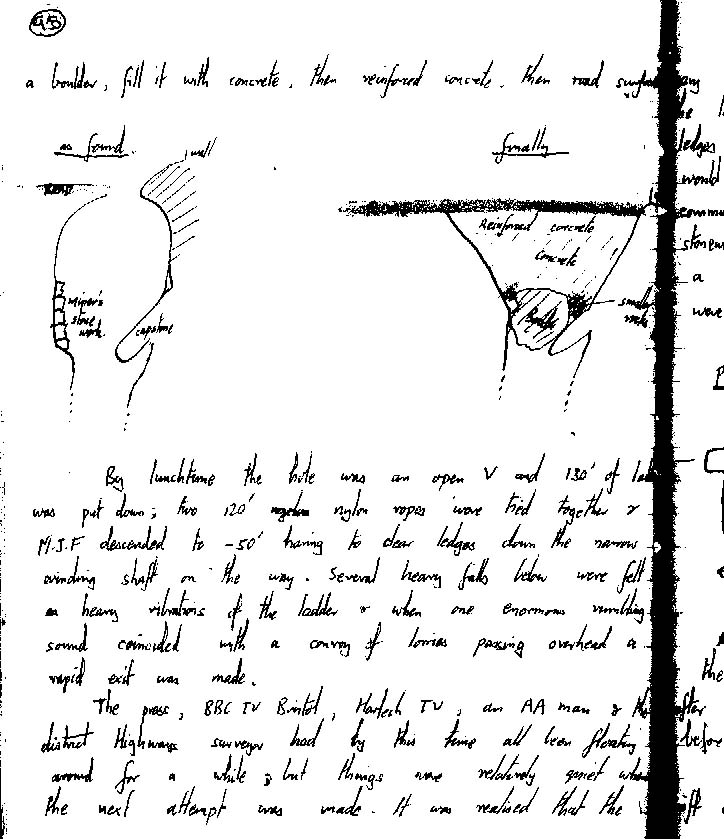 95
a boulder, fill it with concrete, then reinforced concrete, then road surface
as found
wall
finally
Road
Reinforced concrete
Concrete
miner's
stone
work.
capstone
Boulder
small
rocks
By lunchtime the hole was an open V and 130' of
was put down; two 120' nylon ropes were tied together &
M.J.F descended to -50' having to clear ledges down the narrow
winding shaft on the way. Several heavy falls below were felt
as heavy vibrations of the ladder & when one enormous rumbling
sound coincided with a convoy of lorries passing overhead a
rapid exit was made.
The press, BBC TV Bristol, Harlech TV, an AA man & the
district Highways surveyor had by this time all been floating
around for a while; but things were relatively quiet when
the next attempt was made. It was realised that the
ledges
would
stonew
a
were
the
before